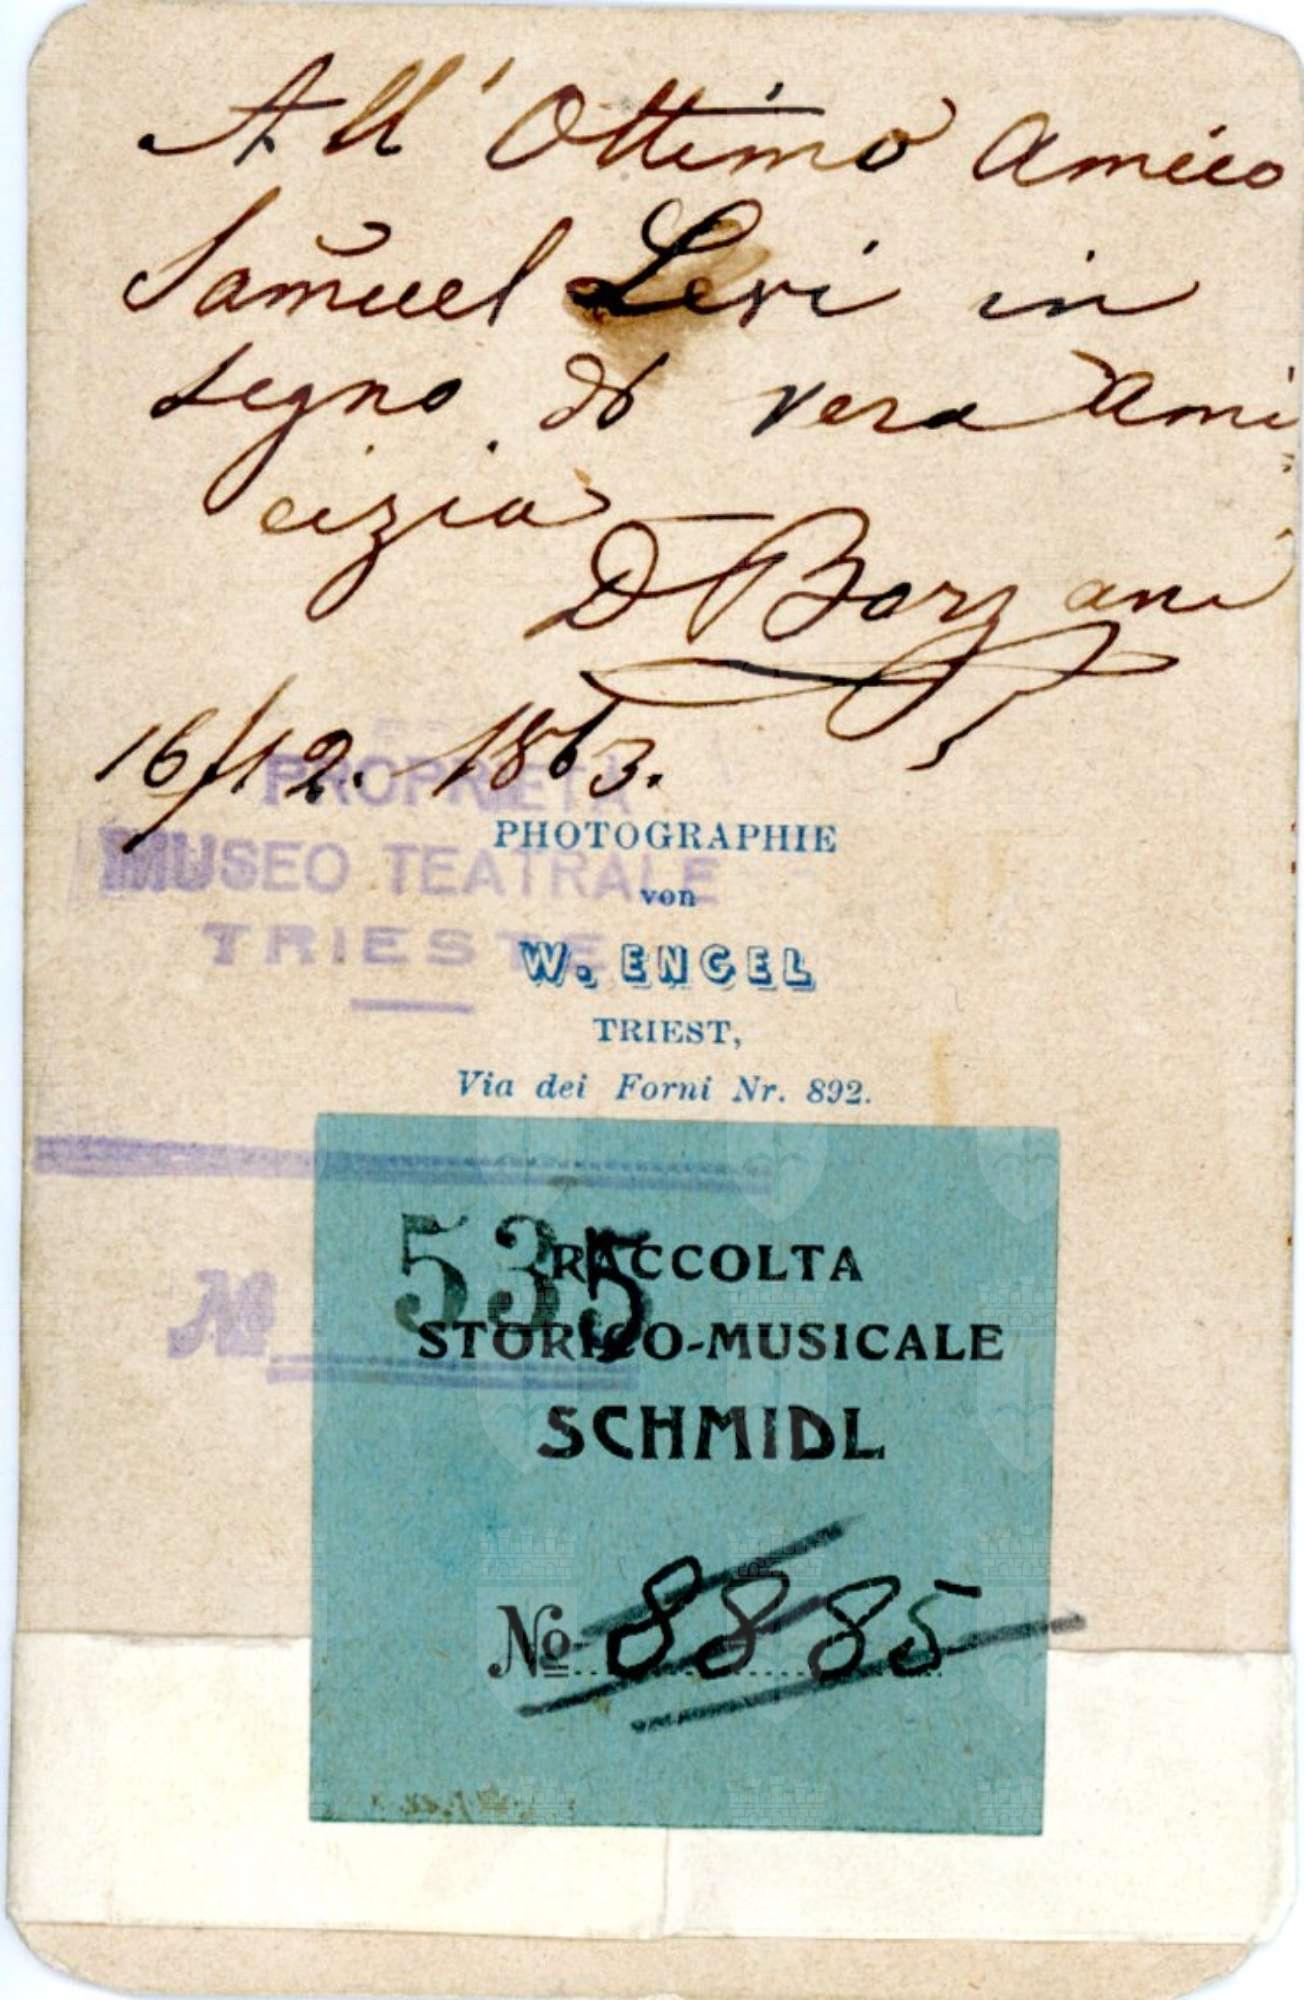 All' Ottimo Amico
Samuel Levi in
segno di vera Ami
cizia
D Borzani
16/12. 1863.
PROPRIETÀ
MUSEO TEATRALE
TRIESTE
PHOTOGRAPHIE
von
W. ENGEL
TRIEST,
Via dei Forni Nr. 892.
№ 535
RACCOLTA
STORICO-MUSICALE
SCHMIDL
№ 8885